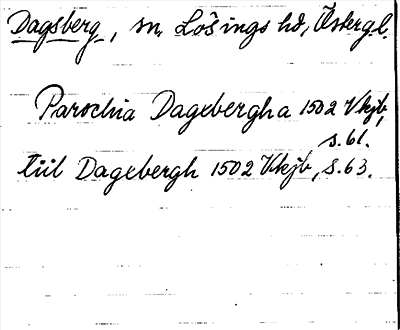 Dagsberg, sn, Lösings hd, Östergl.
Parochia Dagebergha 1502 Vkjb,
s. 61.
tiil Dagebergh 1502 Vkjb, s. 63.